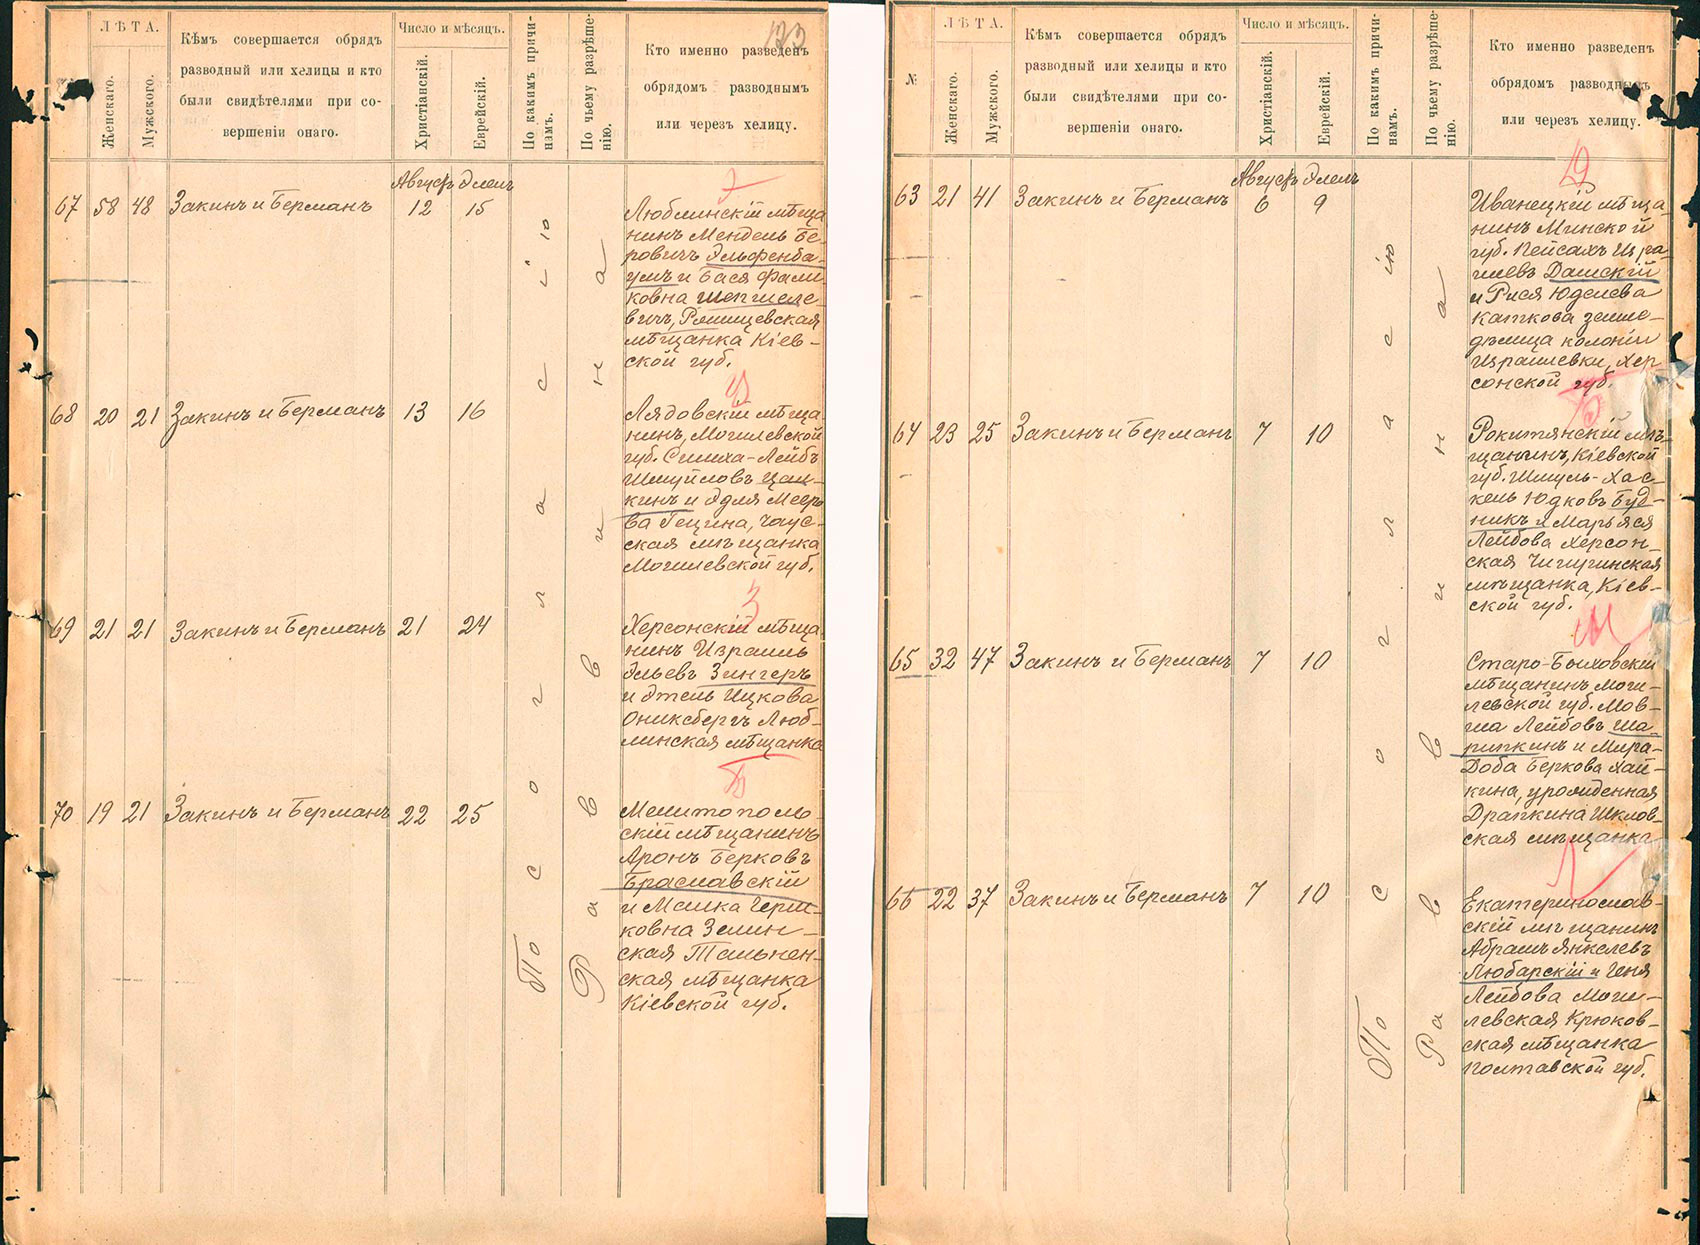 173
ЛѢТА.
Женскаго.
Мужскаго.
Кѣмъ совершается обрядъ
разводный или хелицы и кто
были свидѣтелями при со-
вершеніи онаго.
Число и мѣсяцъ.
Христіанскій.
Еврейскій.
По какимъ причи-
намъ.
По чьему разрѣше-
нію.
Кто именно разведенъ
обрядомъ разводнымъ
или черезъ хелицу.
Августъ Элелъ
67 58 48 Закинъ и Берманъ 12 15
Люблинскій мѣща
нинъ Мендель Бе-
ровичъ Эльфенба-
умъ и Бася Фали
ковна Шепшеле-
вичъ, Ряшищевская
мѣщанка Кіев-
ской губ.
68 20 21 Закинъ и Берманъ 13 16
Лядовскій мѣща
нинъ, Могилевской
губ. Симха-Лейбъ
Шмуйловъ Цаш-
кинъ и Эдля Мееро
ва Гецина, Чаус-
ская мѣщанка
Могилевской губ.
69 21 21 Закинъ и Берманъ 21 24
Херсонскій мѣща
нинъ Израиль
Эльевъ Зингеръ
и Этель Ицкова
Ониксбергъ Люб-
линская мѣщанка
70 19 21 Закинъ и Берманъ 22 25
Мелитополь-
скій мѣщанинъ
Аронъ Берковъ
Браславскій
и Малка Герш-
ковна Зелин-
ская Тальнен-
ская мѣщанка
Кіевской губ.
По согласію
Раввина
№
ЛѢТА.
Женскаго.
Мужскаго.
Кѣмъ совершается обрядъ
разводный или хелицы и кто
были свидѣтелями при со-
вершеніи онаго.
Число и мѣсяцъ.
Христіанскій.
Еврейскій.
По какимъ причи-
намъ.
По чьему разрѣше-
нію.
Кто именно разведенъ
обрядомъ разводнымъ
или черезъ хелицу.
Августъ Элелъ
63 21 41 Закинъ и Берманъ 6 9
Иванецкій мѣща-
нинъ Минской
губ. Пейсахъ Изра
илевъ Дашскій
и Рися Юделева
Каткова земле-
дѣлица колоніи
Израилевки, Хер
сонской губ.
64 23 25 Закинъ и Берманъ 7 10
Рокитянскій мѣ-
щанинъ, Кіевской
губ. Шмуль-Хас-
кель Юдковъ Буд-
никъ и Марьяся
Лейбова Херсон-
ская Чигиринская
мѣщанка, Кіев-
ской губ.
65 32 47 Закинъ и Берманъ 7 10
Старо-Быховскій
мѣщанинъ Моги-
левской губ. Мов-
ша Лейбовъ Ша-
пипкинъ и Мира-
Доба Беркова Хай-
кина, урожденная
Драпкина Шклов-
ская мѣщанка
66 22 37 Закинъ и Берманъ 7 10
Екатеринослав-
скій мѣщанинъ
Абрамъ Янкелевъ
Любарскій и Геня
Лейбова Моги-
левская Крюков-
ская мѣщанка
Полтавской губ.
По согласію
Раввина